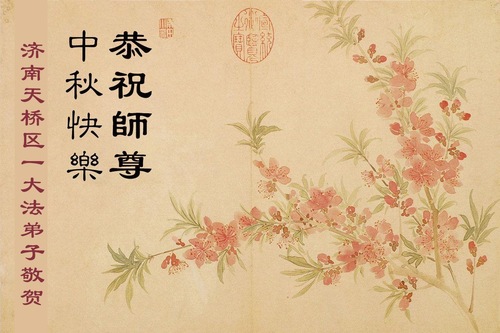 恭祝師尊
中秋快樂
济南天桥区一大法弟子敬贺